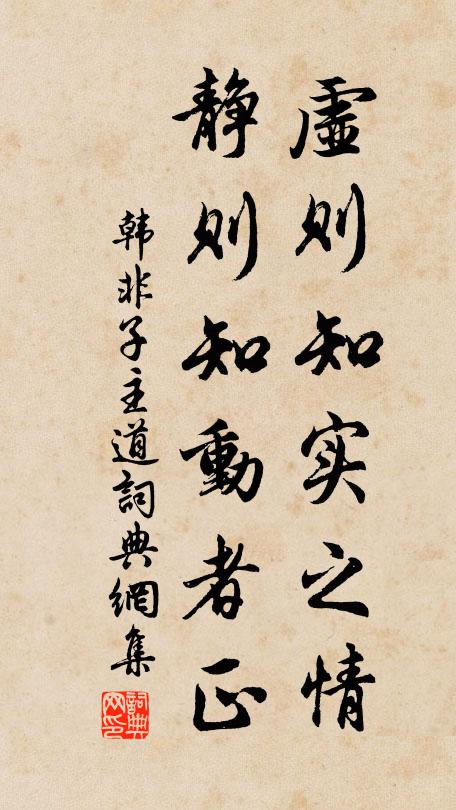 虛则知实之情
静则知動者正
韩非子主道詞典網集
詞典网印